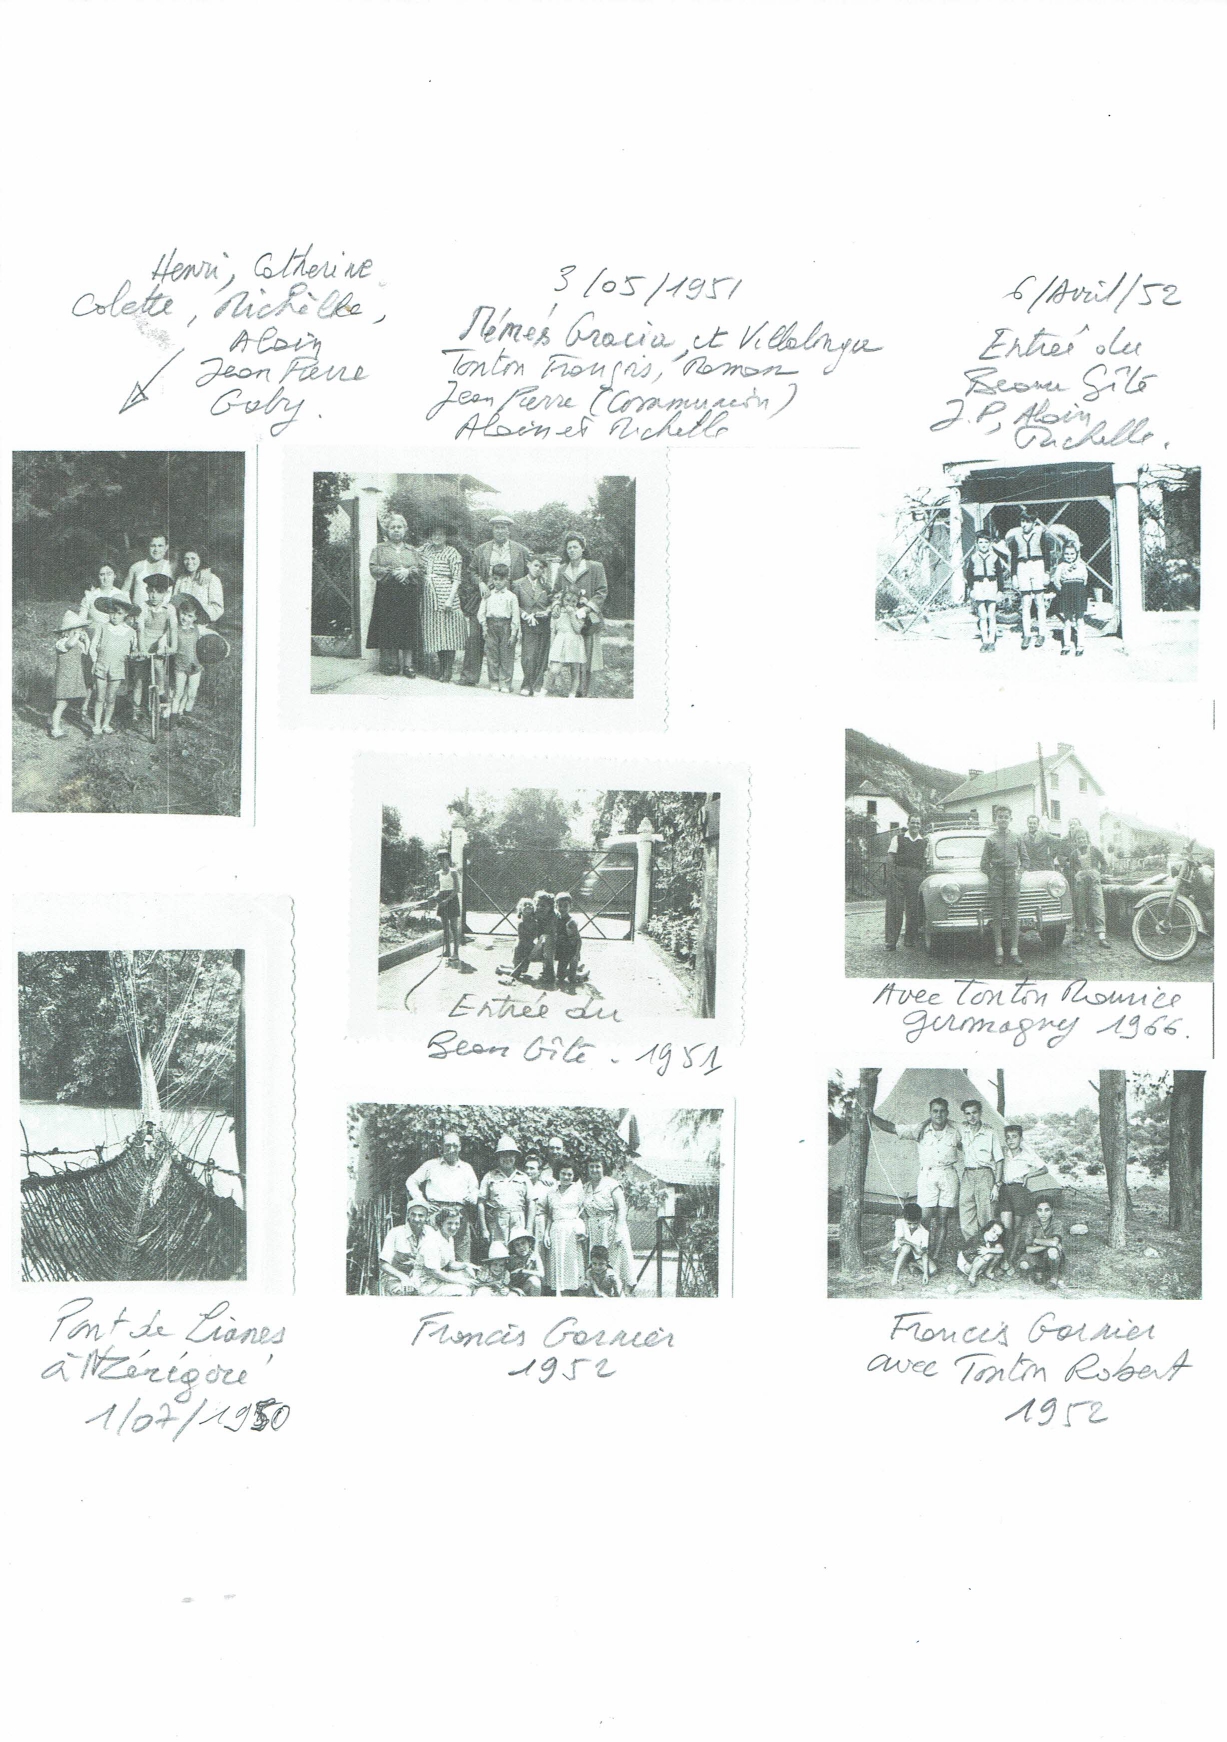 Henri, Catherine
Colette, Michèlle,
Alain
Jean Pierre
Gaby.
3/05/1951
Mémés Gracia, et Villalonga
Tonton François, Maman
Jean Pierre (Communion)
Alain et Michelle
6/Avril/52
Entreé du
Beau Gîte
J.P, Alain
Michelle.
Entrée du
Beau Gîte - 1951
Avec Tonton Maurice
Giromagny 1966.
Pont de Lianes
à N'Zérégoré
1/07/1950
Francis Garnier
1952
Francis Garnier
avec Tonton Robert
1952